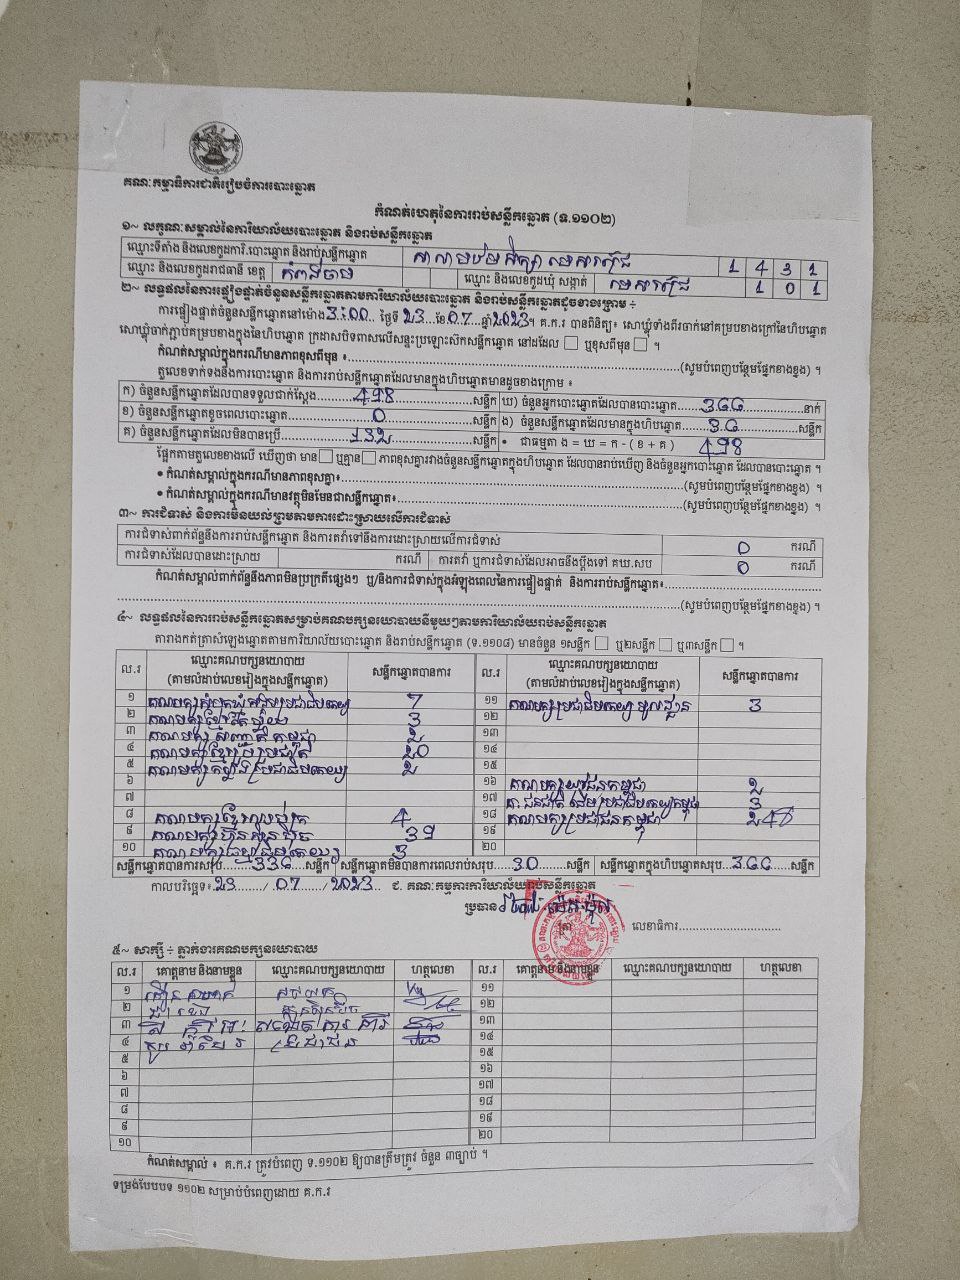 គណៈកម្មាធិការជាតិរៀបចំការបោះឆ្នោត
កំណត់ហេតុនៃការរាប់សន្លឹកឆ្នោត (ទ.១១០២)
១~ លក្ខណៈសម្គាល់នៃការិយាល័យបោះឆ្នោត និងរាប់សន្លឹកឆ្នោត
ឈ្មោះទីតាំង និងលេខកូដការិ.បោះឆ្នោត និងរាប់សន្លឹកឆ្នោត សាលាបឋមសិក្សា មេសរជ្រៃ 1 4 3 1
ឈ្មោះ និងលេខកូដរាជធានី ខេត្ត កំពង់ចាម ឈ្មោះ និងលេខកូដឃុំ សង្កាត់ មេសរជ្រៃ 1 0 1
២~ លទ្ធផលនៃការផ្ទៀងផ្ទាត់ចំនួនសន្លឹកឆ្នោតតាមការិយាល័យបោះឆ្នោត និងរាប់សន្លឹកឆ្នោតដូចខាងក្រោម ÷
ការផ្ទៀងផ្ទាត់ចំនួនសន្លឹកឆ្នោតនៅម៉ោង 3:00 ថ្ងៃទី 23 ខែ 07 ឆ្នាំ 2023។ គ.ក.រ បានពិនិត្យ៖ សោឃ្មុំទាំងពីរចាក់នៅគម្របខាងក្រៅនៃហិបឆ្នោត
សោឃ្មុំចាក់ភ្ជាប់គម្របខាងក្នុងនៃហិបឆ្នោត ក្រដាសបិទពាសលើសន្ទះប្រឡោះស៊កសន្លឹកឆ្នោត នៅដដែល ឬខុសពីមុន ។
កំណត់សម្គាល់ក្នុងករណីមានភាពខុសពីមុន ៖ (សូមបំពេញបន្ថែមផ្នែកខាងខ្នង) ។
តួលេខទាក់ទងនឹងការបោះឆ្នោត និងការរាប់សន្លឹកឆ្នោតដែលមានក្នុងហិបឆ្នោតមានដូចខាងក្រោម ៖
ក) ចំនួនសន្លឹកឆ្នោតដែលបានទទួលជាក់ស្ដែង 498 សន្លឹក ឃ) ចំនួនអ្នកបោះឆ្នោតដែលបានបោះឆ្នោត 366 នាក់
ខ) ចំនួនសន្លឹកឆ្នោតខូចពេលបោះឆ្នោត 0 សន្លឹក ង) ចំនួនសន្លឹកឆ្នោតដែលមានក្នុងហិបឆ្នោត សន្លឹក
គ) ចំនួនសន្លឹកឆ្នោតដែលមិនបានប្រើ 132 សន្លឹក • ជាធម្មតា ង = ឃ = ក - ( ខ + គ ) 498
ផ្អែកតាមតួលេខខាងលើ ឃើញថា មាន ឬគ្មាន ភាពខុសគ្នារវាងចំនួនសន្លឹកឆ្នោតក្នុងហិបឆ្នោត ដែលបានរាប់ឃើញ និងចំនួនអ្នកបោះឆ្នោត ដែលបានបោះឆ្នោត ។
• កំណត់សម្គាល់ក្នុងករណីមានភាពខុសគ្នា៖ (សូមបំពេញបន្ថែមផ្នែកខាងខ្នង) ។
• កំណត់សម្គាល់ក្នុងករណីមានវត្ថុមិនមែនជាសន្លឹកឆ្នោត៖ (សូមបំពេញបន្ថែមផ្នែកខាងខ្នង) ។
៣~ ការជំទាស់ និងការមិនយល់ព្រមតាមការដោះស្រាយលើការជំទាស់
ការជំទាស់ពាក់ព័ន្ធនឹងការរាប់សន្លឹកឆ្នោត និងការតវ៉ាទៅនឹងការដោះស្រាយលើការជំទាស់ 0 ករណី
ការជំទាស់ដែលបានដោះស្រាយ ករណី ការតវ៉ា ឬការជំទាស់ដែលអាចនឹងប្ដឹងទៅ គឃ.សប 0 ករណី
កំណត់សម្គាល់ពាក់ព័ន្ធនឹងភាពមិនប្រក្រតីផ្សេងៗ ឬ/និងការជំទាស់ក្នុងអំឡុងពេលនៃការផ្ទៀងផ្ទាត់ និងការរាប់សន្លឹកឆ្នោត៖
(សូមបំពេញបន្ថែមផ្នែកខាងខ្នង) ។
៤~ លទ្ធផលនៃការរាប់សន្លឹកឆ្នោតសម្រាប់គណបក្សនយោបាយនីមួយៗតាមការិយាល័យរាប់សន្លឹកឆ្នោត
តារាងកត់ត្រាសំឡេងឆ្នោតតាមការិយាល័យបោះឆ្នោត និងរាប់សន្លឹកឆ្នោត (ទ.១១០៨) មានចំនួន ១សន្លឹក ឬ២សន្លឹក ឬ៣សន្លឹក ។
ល.រ ឈ្មោះគណបក្សនយោបាយ (តាមលំដាប់លេខរៀងក្នុងសន្លឹកឆ្នោត) សន្លឹកឆ្នោតបានការ ល.រ ឈ្មោះគណបក្សនយោបាយ (តាមលំដាប់លេខរៀងក្នុងសន្លឹកឆ្នោត) សន្លឹកឆ្នោតបានការ
១ គណបក្សសំបុកឃ្មុំសង្គមប្រជាធិបតេយ្យ 7 ១១ គណបក្សប្រជាធិបតេយ្យមូលដ្ឋាន 3
២ គណបក្សខ្មែររួបរួម 3 ១២
៣ គណបក្សសញ្ជាតិកម្ពុជា 2 ១៣
៤ គណបក្ស 20 ១៤
៥ គណបក្សកម្លាំងប្រជាធិបតេយ្យ 2 ១៥
៦ ១៦ គណបក្សយុវជនកម្ពុជា 2
៧ ១៧ គ.ជនជាតិដើមប្រជាធិបតេយ្យកម្ពុជា 3
៨ គណបក្ស 4 ១៨ គណបក្សប្រជាជនកម្ពុជា
៩ គណបក្សហ្វ៊ុនស៊ិនប៉ិច 39 ១៩
១០ គណបក្សធម្មាធិបតេយ្យ 3 ២០
សន្លឹកឆ្នោតបានការសរុប 336 សន្លឹក សន្លឹកឆ្នោតមិនបានការពេលរាប់សរុប 30 សន្លឹក សន្លឹកឆ្នោតក្នុងហិបឆ្នោតសរុប 366 សន្លឹក
កាលបរិច្ឆេទ៖ 23 / 07 / 2023 ជ. គណៈកម្មការការិយាល័យរាប់សន្លឹកឆ្នោត
ប្រធាន
លេខាធិការ
៥~ សាក្សី ÷ ភ្នាក់ងារគណបក្សនយោបាយ
ល.រ គោត្តនាម និងនាមខ្លួន ឈ្មោះគណបក្សនយោបាយ ហត្ថលេខា ល.រ គោត្តនាម និងនាមខ្លួន ឈ្មោះគណបក្សនយោបាយ ហត្ថលេខា
១ ១១
២ ហ៊្វុនស៊ិនប៉ិច ១២
៣ ១៣
៤ ប្រជាជន ១៤
៥ ១៥
៦ ១៦
៧ ១៧
៨ ១៨
៩ ១៩
១០ ២០
កំណត់សម្គាល់ ៖ គ.ក.រ ត្រូវបំពេញ ទ.១១០២ ឱ្យបានត្រឹមត្រូវ ចំនួន ៣ច្បាប់ ។
ទម្រង់បែបបទ ១១០២ សម្រាប់បំពេញដោយ គ.ក.រ